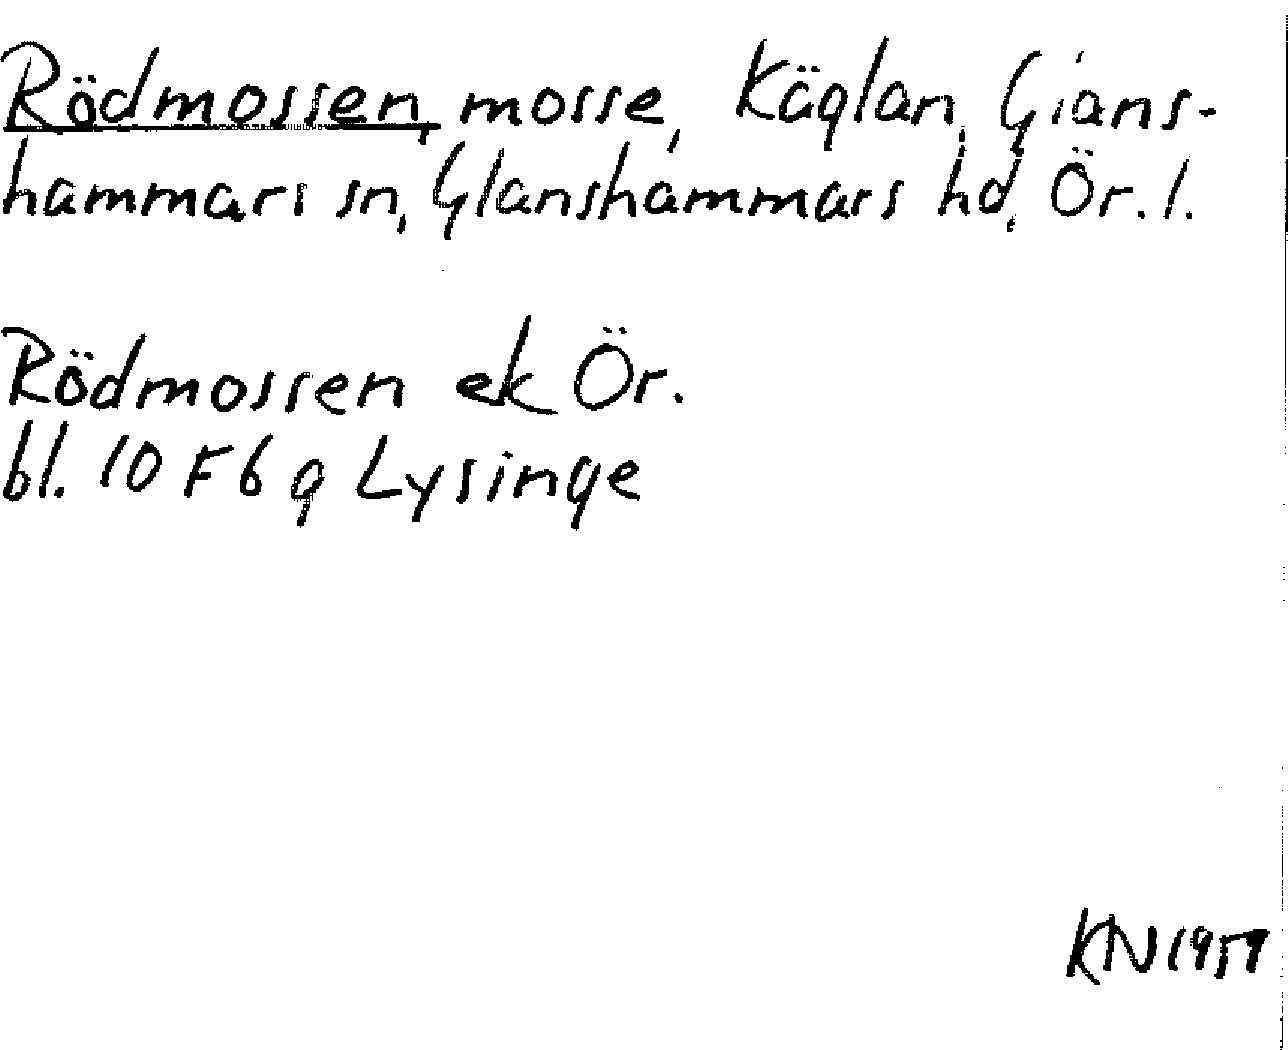 Rödmossen, mosse, Käglan, Glans-
hammars sn, Glanshammars hd, Ör. l.
Rödmossen ek Ör.
bl. 10 F 6 g Lysinge
KN 1959